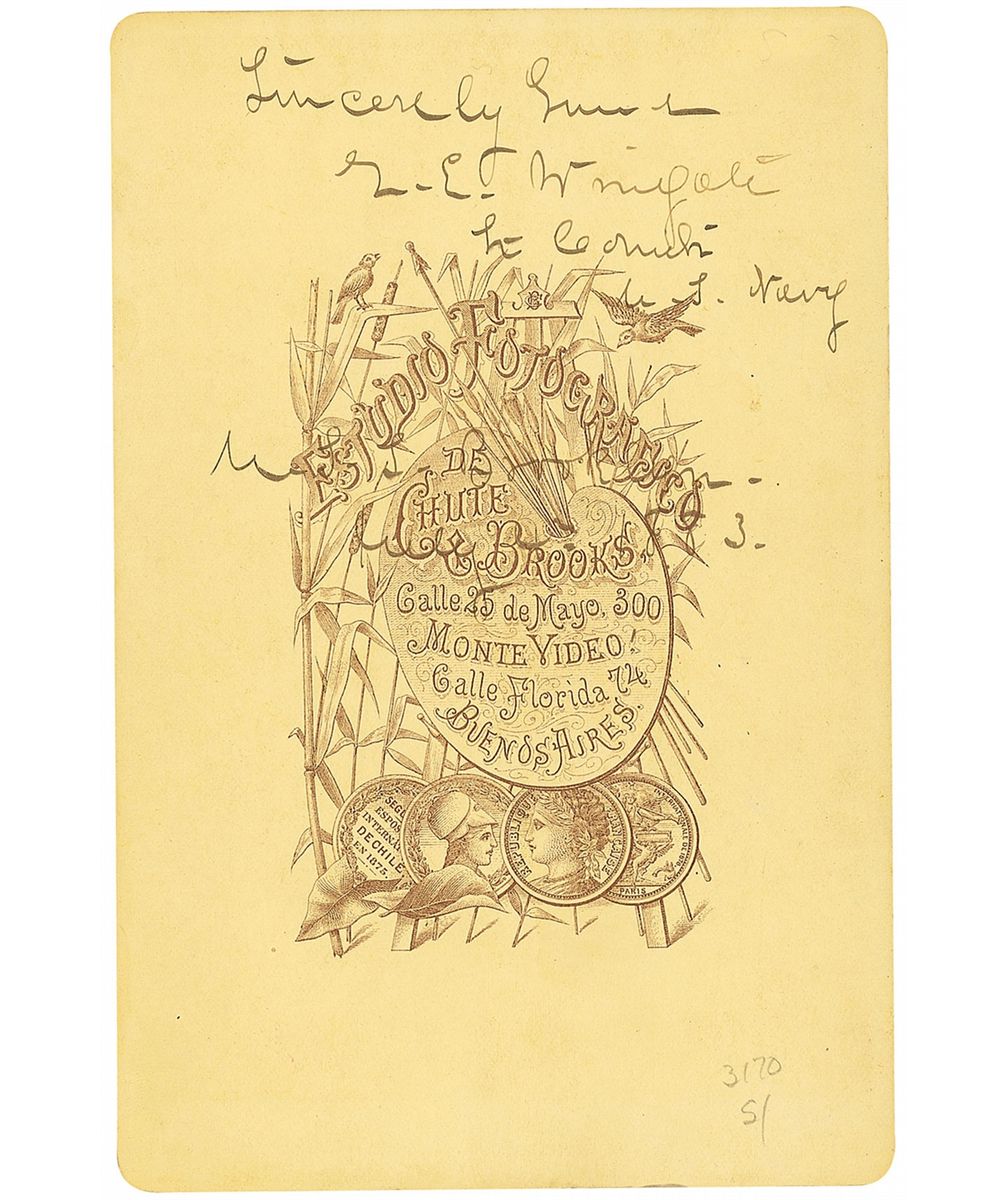 Sincerely Yours
G. E. Wingate
Lt Comdr
U. S. Navy
ESTUDIO FOTOGRAFICO
DE
CHUTE
& BROOKS,
3.
Calle 25 de Mayo, 300
MONTEVIDEO!
Calle Florida, 74,
BUENOS AIRES.
SEGU
ESPOS
INTERNA
DE CHILE
EN 1875.
REPUBLIQUE
FRANCAISE
INTERNATIONALE DE 1878
PARIS
3170
S/